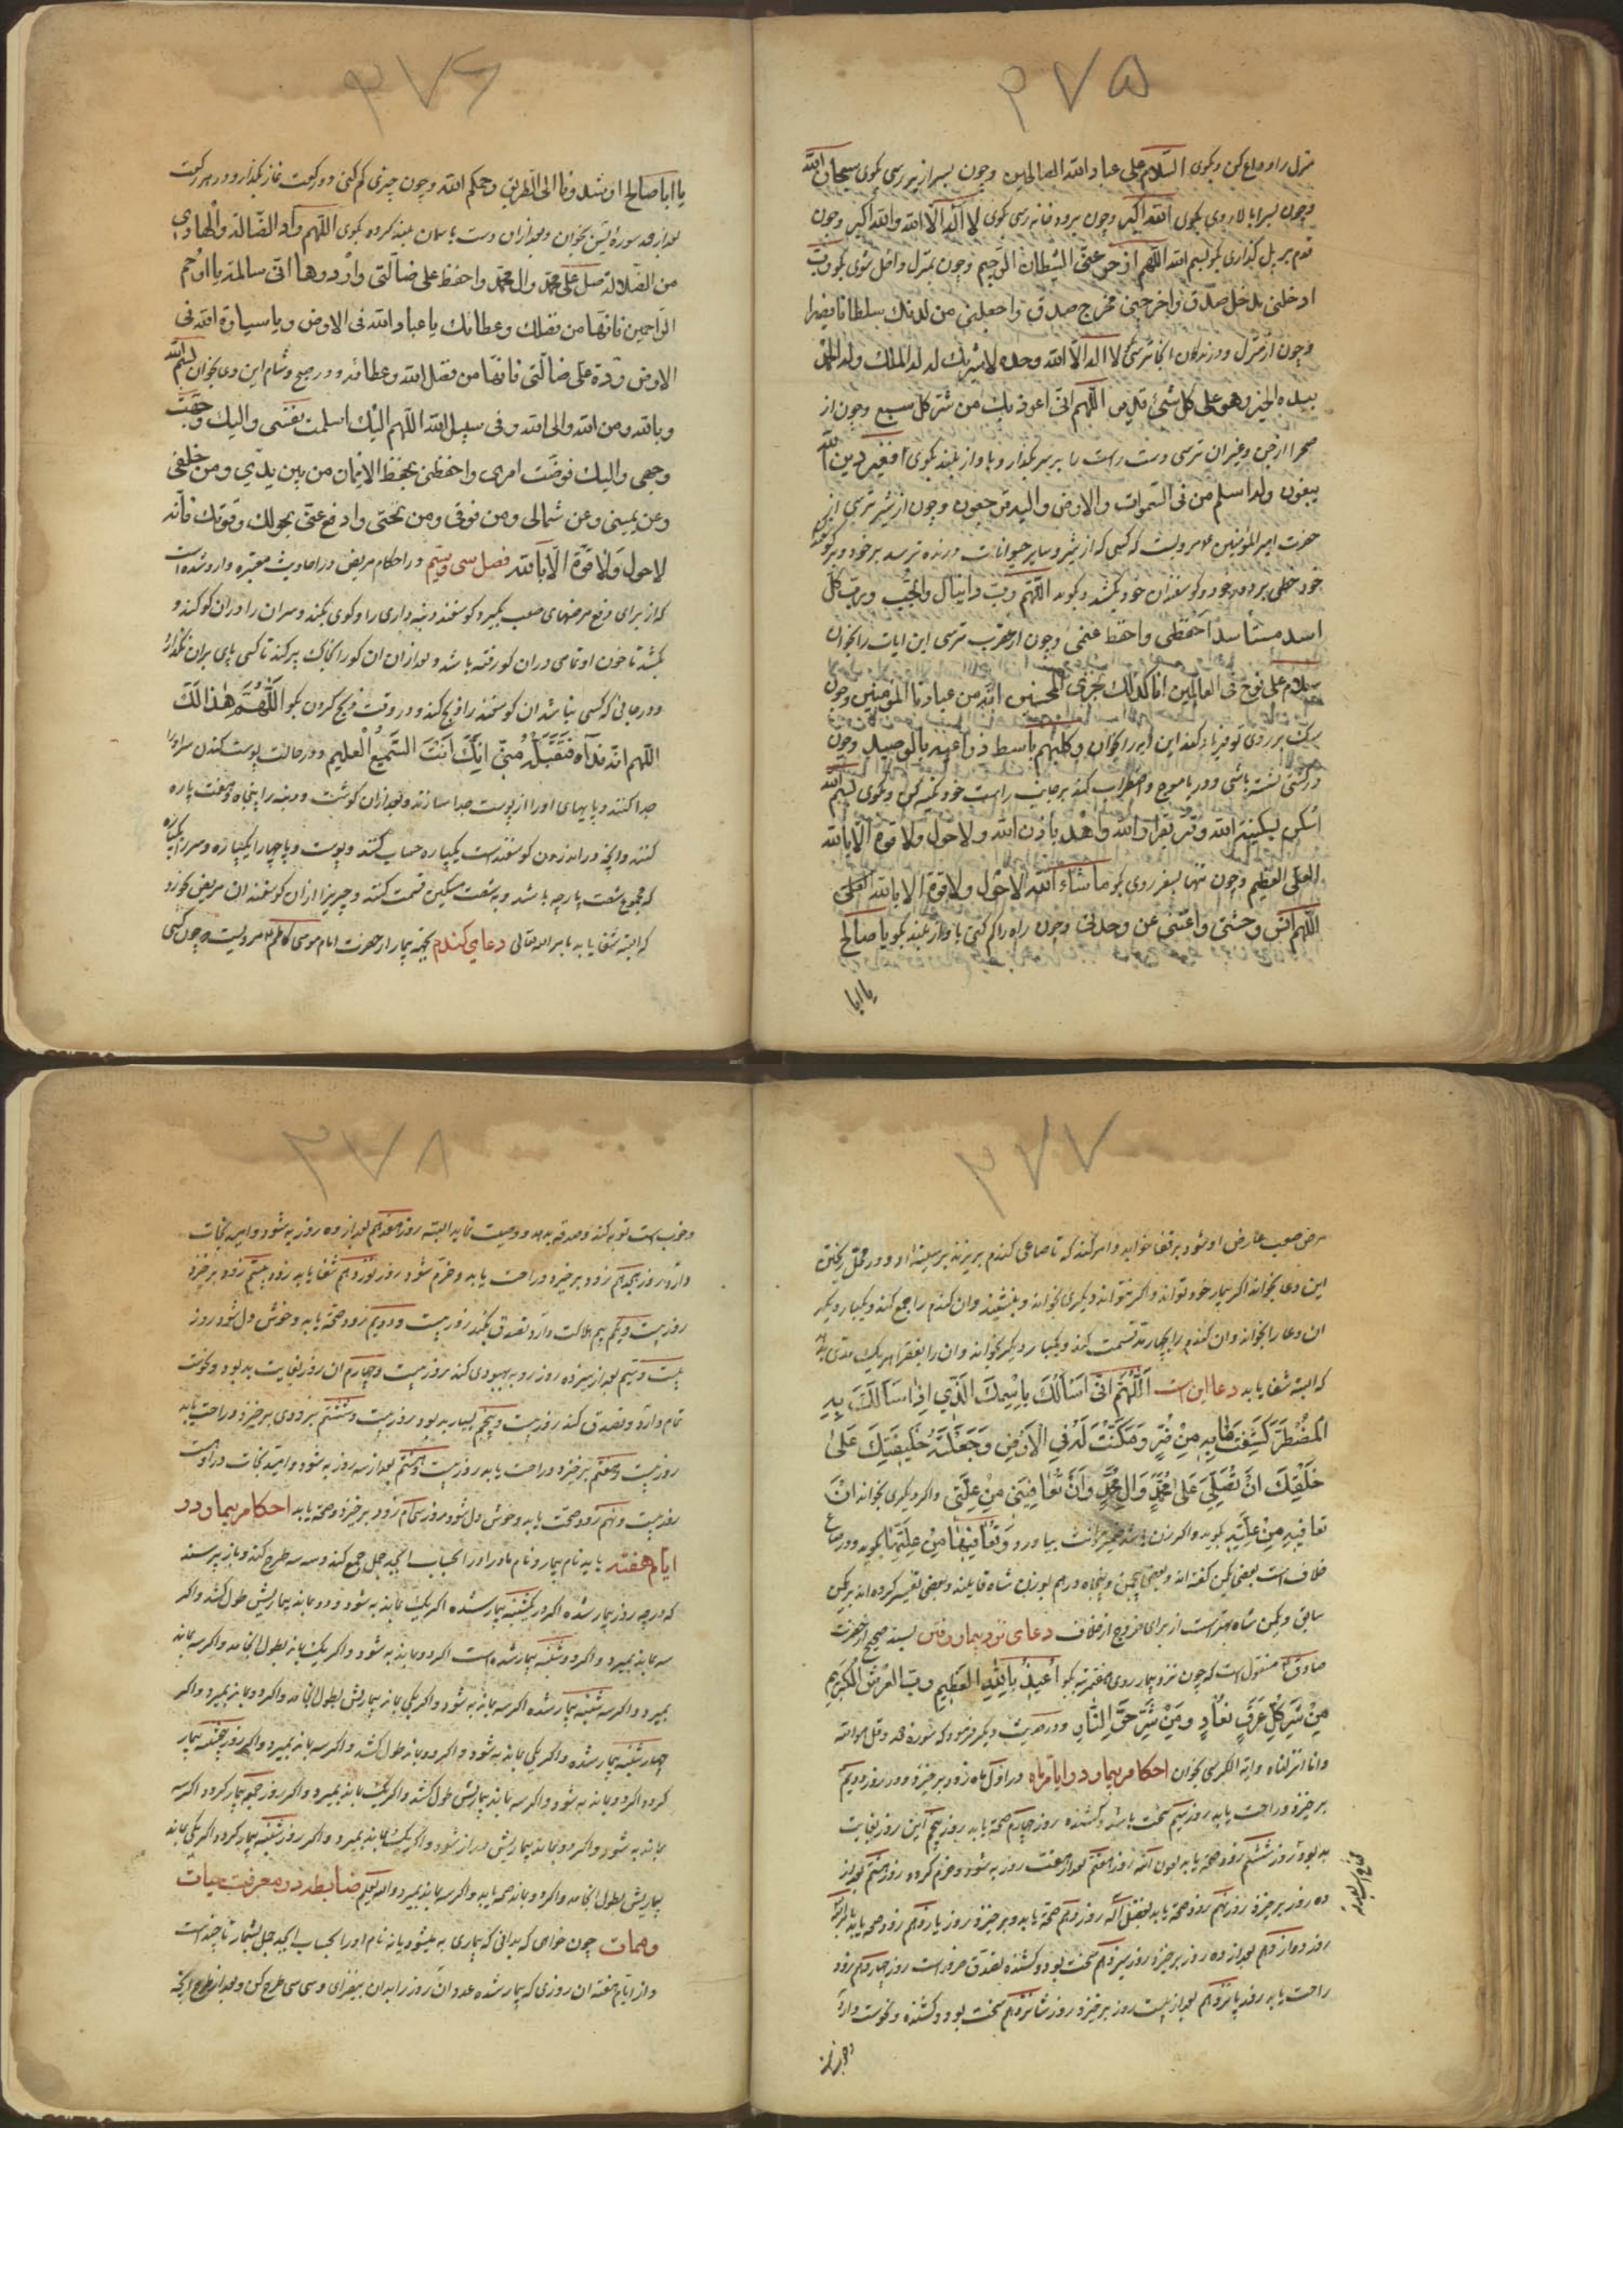 ۳۷۵
منزل را وداع کن و بگوی السّلام علی عباد الله الصالحین و چون بسرازیر رسی بگوی سبحان الله
و چون بسر بالا روی بگوی الله اکبر و چون برودخانه رسی بگوی لا اله الّا الله والله اکبر و چون
قدم بر پل گذاری بگو بسم الله اللّهم ازحر عنّی الشیطان الرّجیم و چون بمنزل داخل شوی بگو ربّ
ادخلنی مدخل صدق واخرجنی مخرج صدق واجعلنی من لدنک سلطانا نصیرا
و چون از منزل و درندگان انجا ترسی لا اله الّا الله وحده لا شریک له له الملک وله الحمد
بیده الخیر وهو علی کل شئ قدیر اللّهم انّی اعوذ بک من شر کل سبع و چون از
صحرا از جن و غیر ان ترسی دست راست را بر سر بگذار و باواز بلند بگوی افغیر دین الله
یبغون وله اسلم من فی السّموات والارض والیه ترجعون و چون از شیر ترسی از
حضرت امیر المؤمنین ع مرویست که کسی که از شیر و سایر حیوانات درنده ترسد بر خود و بر گوسفندان
خود خطی بر دور خود و گوسفندان خود بکشد و بگوید اللّهمّ ربّ دانیال والجبّ وربّ کلّ
اسد مستأسد احفظی واحفظ غنمی و چون از عقرب ترسی این ایات را بخوان
سلام علی نوح فی العالمین انا کذلک نجزی المحسنین انّه من عبادنا المؤمنین و چون
سگ بر روی تو فریاد کند این ایه را بخوان وکلبهم باسط ذراعیه بالوصید و چون
در کشتی نشسته باشی و دریا موج و اضطراب کند بر جانب راست خود تکیه کن و بگوی بسم الله
اسکن بسکینة الله وقر بقرار الله واهدء باذن الله ولا حول ولا قوة الّا بالله
العلی العظیم و چون تنها بسفر روی بگو ما شاء الله لا حول ولا قوة الا بالله العلی
اللّهم انس وحشتی واعنّی عن وحدتی و چون راه را گم کنی باواز بلند بگو یا صالح
یا ابا
۳۷۶
یا ابا صالح ارشدونا الی الطریق رحمکم الله و چون چیزی گم کنی دو رکعت نماز بگذار و در هر رکعت
بعد از حمد سورهٔ یس بخوان و بعد از ان دست باسمان بلند کرده بگوی اللّهم رادّ الضّالة والهادی
من الضلالة صل علی محمد وال محمد واحفظ علی ضالّتی وارددها الیّ سالمة یا ارحم
الرّاحمین فانّها من فضلک وعطائک یا عباد الله فی الارض ویا سیارة الله فی
الارض ردّوا علیّ ضالّتی فانّها من فضل الله وعطائه و در صبح و شام این دعا بخوان بسم الله
وبالله ومن الله والی الله وفی سبیل الله اللّهم الیک اسلمت نفسی والیک وجّهت
وجهی والیک فوضّت امری واحفظنی بحفظ الایمان من بین یدیّ ومن خلفی
وعن یمینی وعن شمالی ومن فوقی ومن تحتی وادفع عنّی بحولک وقوتک فانّه
لا حول ولا قوّة الّا بالله فصل سی و سیم در احکام مریض در احادیث معتبره وارد شده است
که از برای دفع مرضهای صعب بگیرد گوسفند دنبه داری را و گوی بکند و سر ان را در ان گو کند و
بکشد تا خون او تمامی در ان گو رفته باشد و بعد از ان ان گو را بخاک پر کند تا کسی پای بر ان نگذارد
و در جائی که کسی نباشد ان گوسفند را ذبح کند و در وقت ذبح کردن بگو اللّهمّ هذا لک
اللّهم انّه فداه فتقبّله منّی انّک انت السّمیع العلیم و در حالت پوست کندن سر او را
جدا کنند و پایهای او را از پوست جدا سازند و بعد از ان گوشت و دنبه را پنجاه و هفت پاره
کنند و آنچه در اندرون گوسفند است یکپاره حساب کنند و پوست و پاچها را یکپاره و سر را یکپاره
که مجموع شصت پارچه باشد و به شصت مسکین قسمت کنند و چیزی از ان گوسفند ان مریض نخورد
که البته شفا یابد بامر الله تعالی دعای کندم بجهة بیمار از حضرت امام موسی کاظم ع مرویست چون کسی
۳۷۷
مرض صعب عارض او شود بر قفا خوابد و امر کند که تا صاعی کندم بریزند بر سینهٔ او و در محل ریختن
این دعا بخواند اگر بیمار خود تواند و اگر نتواند دیگری بخواند و بنشیند و ان کندم را جمع کند و یکبار دیگر
ان دعا را بخواند و ان کندم را بچهار مد قسمت کند و یکبار دیگر بخواند و ان را بفقرا هر یک مدی بدهد
که البته شفا یابد دعا این است اللّهمّ انّی اسألک باسمک الّذی اذا سألک به
المضطر کشفت ما به من ضرّ ومکّنت له فی الارض وجعلته خلیفتک علی
خلقک ان تصلّی علی محمّد وال محمّد وان تعافینی من علّتی و اگر دیگری بخواند ان
تعافیه من علّته بگوید و اگر زن باشد ضمیر مؤنث بیاورد وتعافیها من علّتها بگوید و در صاع
خلاف است بعضی یکمن گفته اند و بعضی یکمن و پنجاه درهم بوزن شاه قایلند و بعضی تفسیر کرده اند بر یکمن
سابق و یکمن شاه بهتر است از برای خروج از خلاف دعای نزد بیمار رفتن بسند صحیح از حضرت
صادق ع منقول است که چون نزد بیمار روی هفت مرتبه بگو اعیذک بالله العظیم ربّ العرش الکریم
من شرّ کلّ عرق نعّار ومن شرّ حرّ النّار و در حدیث دیگر فرمود که سورهٔ حمد و قل هو الله
و انا انزلناه و ایة الکرسی بخوان احکام بیمار در ایام ماه در اوّل ماه زود برخیزد و در روز دویم
برخیزد و راحت یابد روز سیم سخت باشد و کشنده روز چهارم صحة یابد روز پنجم این روز بغایت
بد بود روز ششم زود صحة یابد بعون الله روز هفتم بعد از هفت روز به شود و خرم گردد روز هشتم بعد از
ده روز برخیزد روز نهم زود صحة یابد بفضل الله روز دهم صحة یابد و برخیزد روز یازدهم زود صحة یابد
روز دوازدهم بعد از ده روز برخیزد روز سیزدهم سخت بود و کشنده تصدّق ضرور است روز چهاردهم زود
راحت یابد روز پانزدهم بعد از بیست روز برخیزد روز شانزدهم سخت بود و کشنده و نحوست دارد
۳۷۸
و خوب است توبه کند و صدقه بدهد و وصیت نماید البته روز هفدهم بعد از ده روز به شود و امید نجات
دارد روز هیجدهم زود برخیزد و راحت یابد و خرّم شود روز نوزدهم شفا یابد زود بیستم زود برخیزد
روز بیست و یکم بیم هلاکت دارد تصدق بکند روز بیست و دویم زود صحة یابد و خوش دل شود روز
بیست و سیم بعد از سیزده روز رو به بهبودی کند روز بیست و چهارم ان روز بغایت بد بود و نحوست
تمام دارد و تصدق کند روز بیست و پنجم بسیار بد بود روز بیست و ششم بزودی برخیزد و راحت یابد
روز بیست و هفتم برخیزد و راحت یابد روز بیست و هشتم بعد از سه روز به شود و امید نجات در او است
روز بیست و نهم زود صحت یابد و خوش دل شود روز سی ام زود برخیزد و صحة یابد احکام بیمار در
ایّام هفته باید نام بیمار و نام مادر او را بحساب ابجد جمل جمع کند و سه سه طرح کند و باز پرسند
که در چه روز بیمار شده اگر در یکشنبه بیمار شده اگر یک بماند به شود و دو بماند بیماریش طول کشد و اگر
سه بماند بمیرد و اگر دوشنبه بیمار شده است اگر دو بماند به شود و اگر یک بماند بطول انجامد و اگر سه بماند
بمیرد و اگر سه شنبه بیمار شده اگر سه بماند به شود و اگر یکی بماند بیماریش بطول انجامد و اگر دو بماند بمیرد و اگر
چهارشنبه بیمار شده و اگر یکی بماند به شود و اگر دو بماند طول کشد و اگر سه بماند بمیرد و اگر روز پنجشنبه بیمار
گردد اگر دو بماند به شود و اگر سه بماند بیماریش طول کشد و اگر یک بماند بمیرد و اگر روز جمعه بیمار گردد اگر سه
بماند به شود و اگر دو بماند بیماریش دراز شود و اگر یک بماند بمیرد و اگر روز شنبه بیمار گردد اگر یکی بماند
بیماریش بطول انجامد و اگر دو بماند صحة یابد و اگر سه بماند بمیرد والله یعلم ضابطه در معرفت حیات
وممات چون خواهی که بدانی که بیماری به میشود یا نه نام او را بحساب ابجد جمل بشمار تا چند است
و از ایّام هفته ان روزی که بیمار شده عدد ان روز را بدان بیفزای و سی سی طرح کن و بعد از طرح انچه